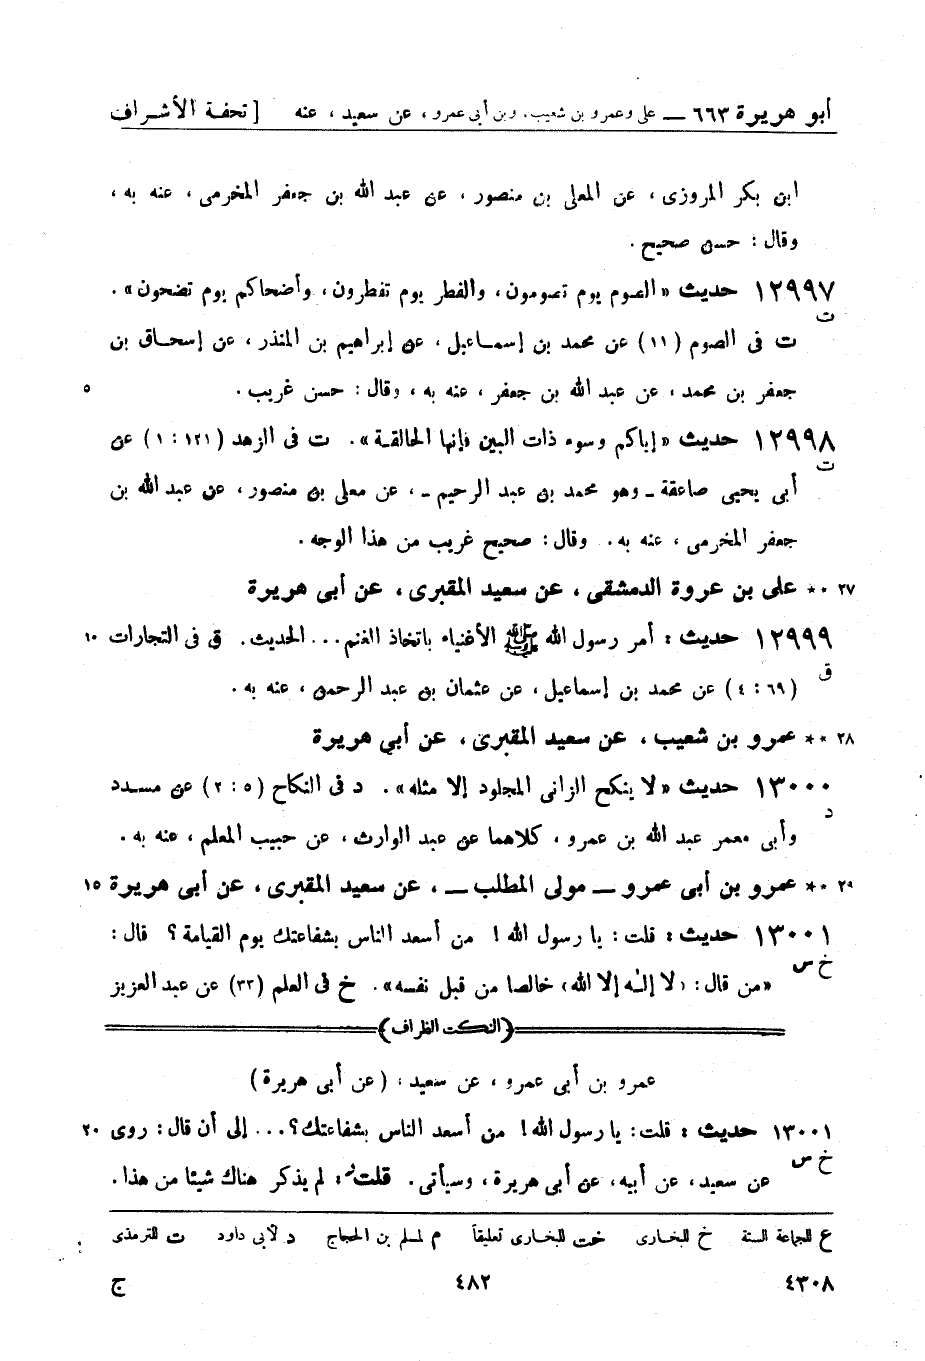 أبو هريرة ٦٦٣ — على وعمرو بن شعيب، وبن أبى عمرو، عن سعيد، عنه [ تحفة الأشراف
ابن بكر المروزى، عن المعلى بن منصور، عن عبد الله بن جعفر المخرمى، عنه به،
وقال: حسن صحيح.
١٢٩٩٧ حديث «الصوم يوم تصومون، والفطر يوم تفطرون، وأضحاكم يوم تضحون».
ت
ت فى الصوم (١١) عن محمد بن إسماعيل، عن إبراهيم بن المنذر، عن إسحاق بن
جعفر بن محمد، عن عبد الله بن جعفر، عنه به، وقال: حسن غريب. ٥
١٢٩٩٨ حديث «إياكم وسوء ذات البين فإنها الحالقة». ت فى الزهد (١٢١ : ١) عن
ت
أبى يحيى صاعقة ــ وهو محمد بن عبد الرحيم ــ، عن معلى بن منصور، عن عبد الله بن
جعفر المخرمى، عنه به. وقال: صحيح غريب من هذا الوجه.
٢٧ ** على بن عروة الدمشقى، عن سعيد المقبرى، عن أبى هريرة
١٢٩٩٩ حديث: أمر رسول الله ﷺ الأغنياء باتخاذ الغنم... الحديث. ق فى التجارات ١٠
ق
(٦٩ : ٤) عن محمد بن إسماعيل، عن عثمان بن عبد الرحمن، عنه به.
٢٨ ** عمرو بن شعيب، عن سعيد المقبرى، عن أبي هريرة
١٣٠٠٠ حديث «لا ينكح الزانى المجلود إلا مثله». د فى النكاح (٥ : ٢) عن مسدد
د
وأبى معمر عبد الله بن عمرو، كلاهما عن عبد الوارث، عن حبيب المعلم، عنه به.
٢٩ ** عمرو بن أبى عمرو — مولى المطلب —، عن سعيد المقبرى، عن أبى هريرة ١٥
١٣٠٠١ حديث: قلت: يا رسول الله! من أسعد الناس بشفاعتك يوم القيامة؟ قال:
خ س
«من قال: ‹لا إله إلا الله› خالصا من قبل نفسه». خ فى العلم (٣٣) عن عبد العزيز
(النكت الظراف)
عمرو بن أبى عمرو، عن سعيد، (عن أبى هريرة)
١٣٠٠١ حديث: قلت: يا رسول الله! من أسعد الناس بشفاعتك؟... إلى أن قال: روى ٢٠
خ س
عن سعيد، عن أبيه، عن أبى هريرة، وسيأتى. قلت: لم يذكر هناك شيئا من هذا.
ع للجماعة الستة خ للبخارى خت للبخارى تعليقاً م لمسلم بن الحجاج د لأبى داود ت للترمذى
٤٣٠٨ ٤٨٢ ج